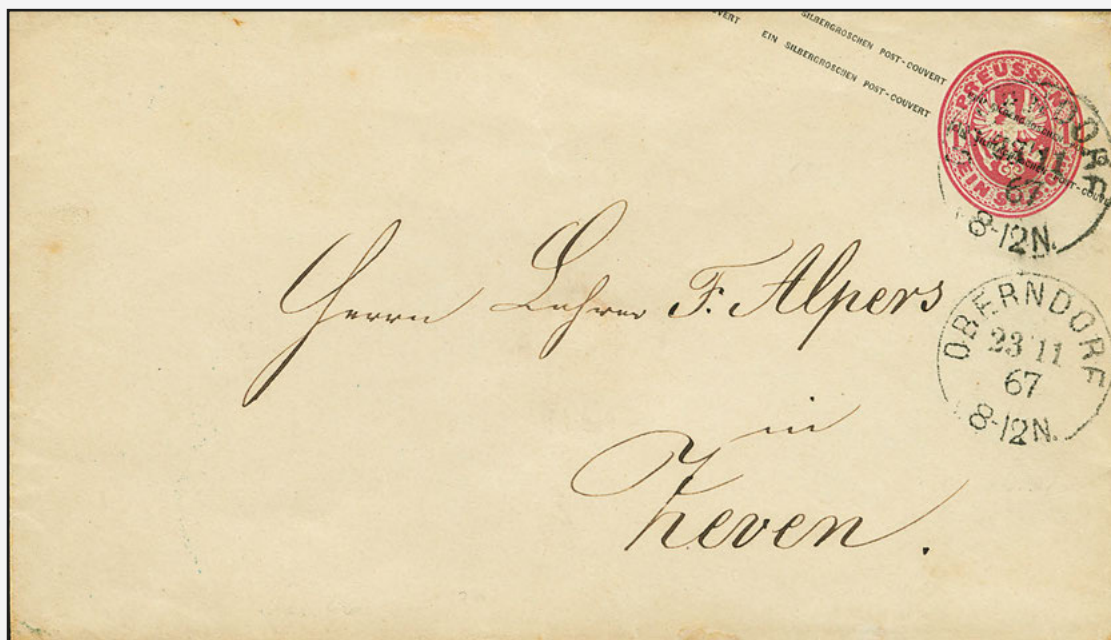 SILBERGROSCHEN POST-COUVERT
EIN SILBERGROSCHEN POST-COUVERT
PREUSSEN
EIN
DORF
23 11
67
8-12N.
Herrn Lehrer F. Alpers
OBERNDORF
23 11
67
8-12N.
in
Zeven.